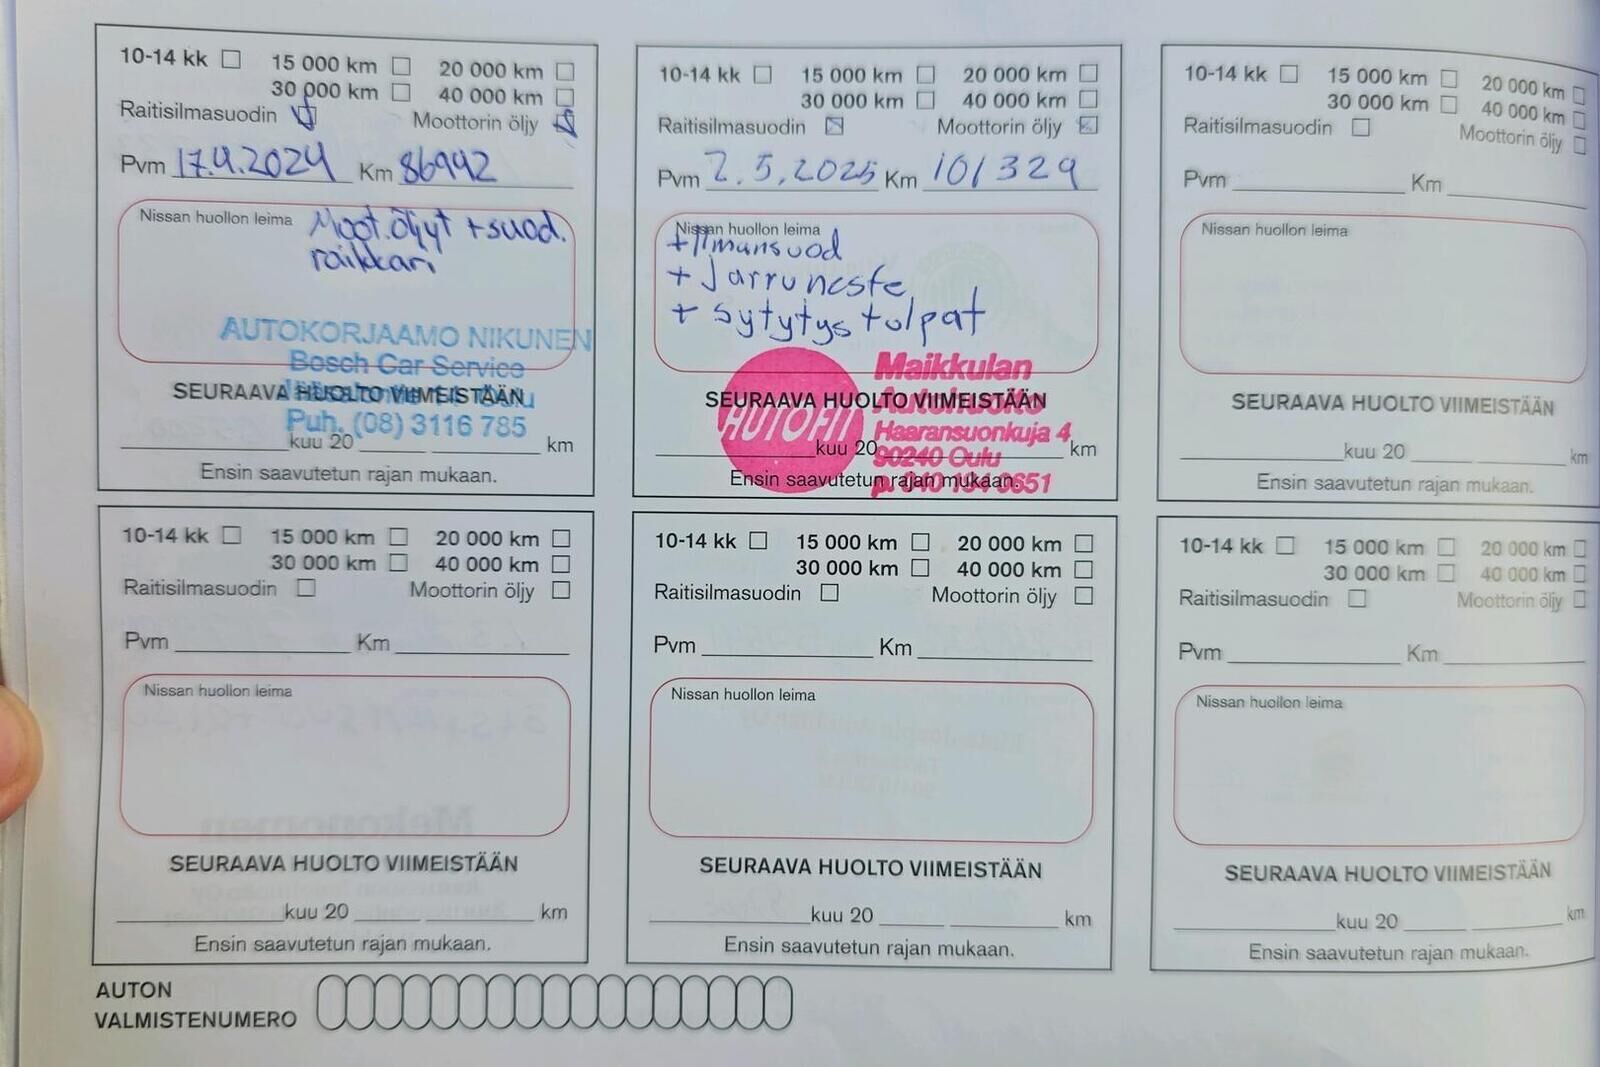 10-14 kk 15 000 km 20 000 km
30 000 km 40 000 km
Raitisilmasuodin Moottorin öljy
Pvm 17.4.2024 Km 86942
Nissan huollon leima Moot.öljyt +suod.
raikkari
AUTOKORJAAMO NIKUNEN
Bosch Car Service
SEURAAVA HUOLTO VIIMEISTÄÄN
Puh. (08) 3116 785
kuu 20 km
Ensin saavutetun rajan mukaan.
10-14 kk 15 000 km 20 000 km
30 000 km 40 000 km
Raitisilmasuodin Moottorin öljy
Pvm 2.5.2025 Km 101329
Nissan huollon leima
+Ilmansuod
+ Jarruneste
+ Sytytystulpat
Maikkulan
SEURAAVA HUOLTO VIIMEISTÄÄN
Autohuolto
AUTOFIT
Haaransuonkuja 4
kuu 20 km
90240 Oulu
Ensin saavutetun rajan mukaan.
10-14 kk 15 000 km 20 000 km
30 000 km 40 000 km
Raitisilmasuodin Moottorin öljy
Pvm Km
Nissan huollon leima
SEURAAVA HUOLTO VIIMEISTÄÄN
kuu 20 km
Ensin saavutetun rajan mukaan.
10-14 kk 15 000 km 20 000 km
30 000 km 40 000 km
Raitisilmasuodin Moottorin öljy
Pvm Km
Nissan huollon leima
SEURAAVA HUOLTO VIIMEISTÄÄN
kuu 20 km
Ensin saavutetun rajan mukaan.
10-14 kk 15 000 km 20 000 km
30 000 km 40 000 km
Raitisilmasuodin Moottorin öljy
Pvm Km
Nissan huollon leima
SEURAAVA HUOLTO VIIMEISTÄÄN
kuu 20 km
Ensin saavutetun rajan mukaan.
10-14 kk 15 000 km 20 000 km
30 000 km 40 000 km
Raitisilmasuodin Moottorin öljy
Pvm Km
Nissan huollon leima
SEURAAVA HUOLTO VIIMEISTÄÄN
kuu 20 km
Ensin saavutetun rajan mukaan.
AUTON
VALMISTENUMERO